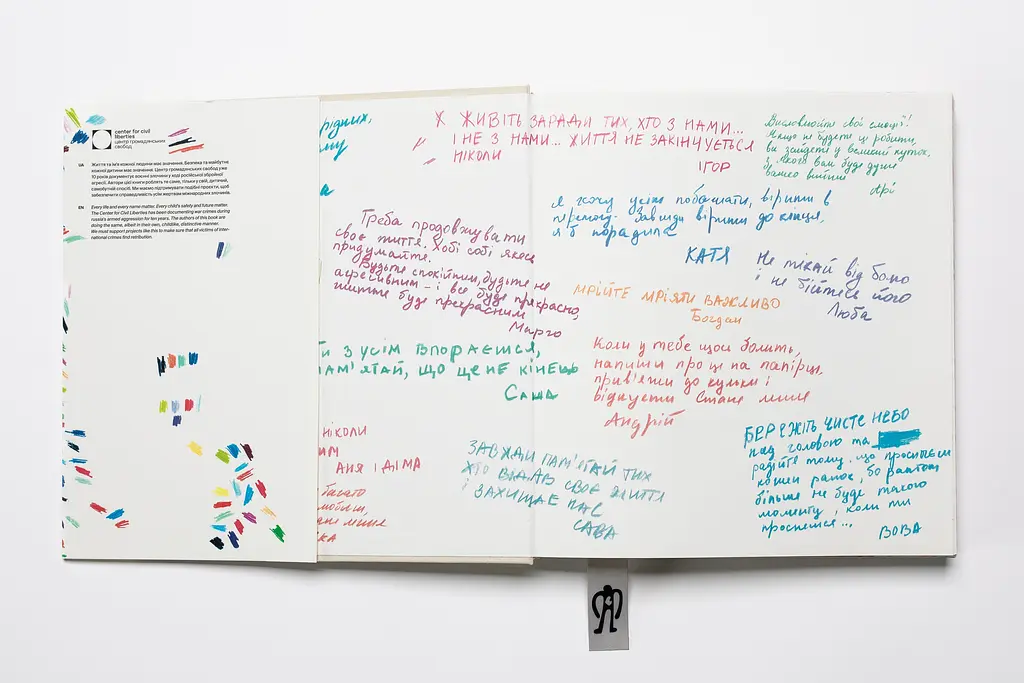 center for civil
liberties
центр громадянських
свобод
UA
Життя та ім'я кожної людини має значення. Безпека та майбутнє
кожної дитини має значення. Центр громадянських свобод уже
10 років документує воєнні злочини у ході російської збройної
агресії. Автори цієї книги роблять те саме, тільки у свій, дитячий,
самобутній спосіб. Ми маємо підтримувати подібні проєкти, щоб
забезпечити справедливість усім жертвам міжнародних злочинів.
EN
Every life and every name matter. Every child's safety and future matter.
The Center for Civil Liberties has been documenting war crimes during
russia's armed aggression for ten years. The authors of this book are
doing the same, albeit in their own, childlike, distinctive manner.
We must support projects like this to make sure that all victims of inter-
national crimes find retribution.
рідних,
му
а
Ж ЖИВІТЬ ЗАРАДИ ТИХ, ХТО З НАМИ...
І НЕ З НАМИ... ЖИТТЯ НЕ ЗАКІНЧУЄТЬСЯ
НІКОЛИ
ІГОР
Висловлюйте свої емоції!
Якщо не будете ц робити,
ви зайдете у великий куток,
з якого вам буде дуже
важко вийти
Арі
Я хочу усім побажати, вірити в
перемогу. Завжди вірити до кінця,
я б порадила
КАТЯ
Треба продовжувати
своє життя. Хобі собі якесь
придумайте.
Будьте спокійним, будьте не
агресивним – і все буде прекрасно,
життя буде прекрасним
Марго
Не тікай від болю
і не бійтеся його
Люба
МРІЙТЕ МРІЯТИ ВАЖЛИВО
Богдан
ти з усім впораєшся,
пам'ятай, що це не кінець
Саша
Коли у тебе щось болить,
напиши про це на папірці,
прив'яжи до кульки і
відпусти стане легше
Андрій
НІКОЛИ
ИМ
АНЯ І ДІМА
багато
любиш,
ане легше
КА
ЗАВЖДИ ПАМ'ЯТАЙ ТИХ
ХТО ВІДДАВ СВОЄ ЖИТТЯ
І ЗАХИЩАЄ НАС
САВА
БЕРЕЖІТЬ ЧИСТЕ НЕБО
над головою та
радійте тому, що проситесь
кожен ранок, бо раптом
більше не буде такого
моменту, коли ти
проснешся...
ВОВА